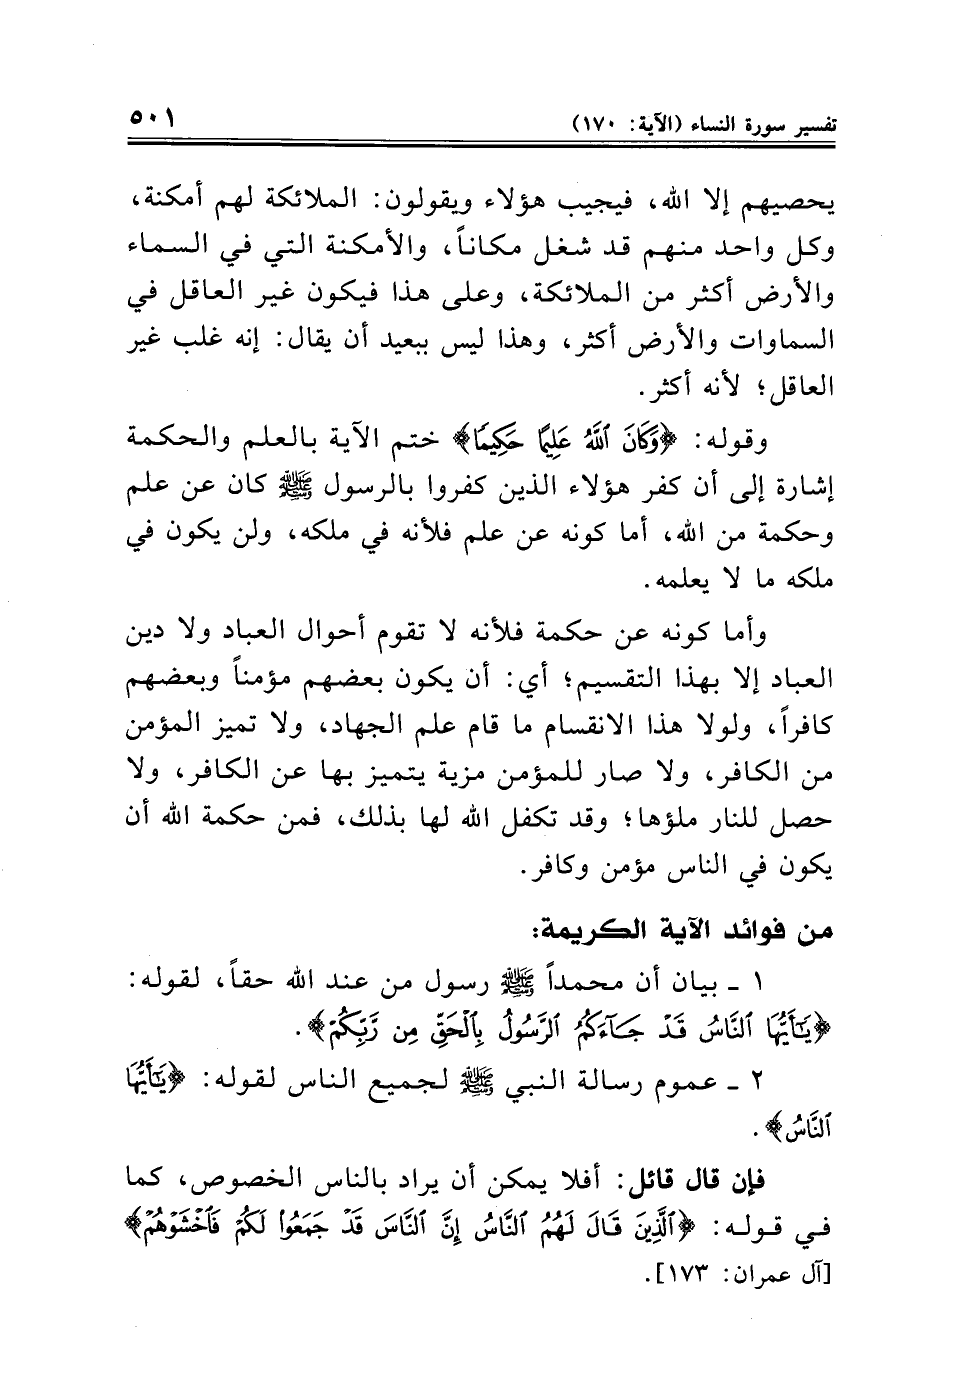 تفسير سورة النساء (الآية: ١٧٠) ٥٠١
يحصيهم إلا الله، فيجيب هؤلاء ويقولون: الملائكة لهم أمكنة،
وكل واحد منهم قد شغل مكاناً، والأمكنة التي في السماء
والأرض أكثر من الملائكة، وعلى هذا فيكون غير العاقل في
السماوات والأرض أكثر، وهذا ليس ببعيد أن يقال: إنه غلب غير
العاقل؛ لأنه أكثر.
وقوله: ﴿وَكَانَ ٱللَّهُ عَلِيمًا حَكِيمًا﴾ ختم الآية بالعلم والحكمة
إشارة إلى أن كفر هؤلاء الذين كفروا بالرسول ﷺ كان عن علم
وحكمة من الله، أما كونه عن علم فلأنه في ملكه، ولن يكون في
ملكه ما لا يعلمه.
وأما كونه عن حكمة فلأنه لا تقوم أحوال العباد ولا دين
العباد إلا بهذا التقسيم؛ أي: أن يكون بعضهم مؤمناً وبعضهم
كافراً، ولولا هذا الانقسام ما قام علم الجهاد، ولا تميز المؤمن
من الكافر، ولا صار للمؤمن مزية يتميز بها عن الكافر، ولا
حصل للنار ملؤها؛ وقد تكفل الله لها بذلك، فمن حكمة الله أن
يكون في الناس مؤمن وكافر.
من فوائد الآية الكريمة:
١ ـ بيان أن محمداً ﷺ رسول من عند الله حقاً، لقوله:
﴿يَـٰٓأَيُّهَا ٱلنَّاسُ قَدْ جَآءَكُمُ ٱلرَّسُولُ بِٱلْحَقِّ مِن رَّبِّكُمْ﴾.
٢ ـ عموم رسالة النبي ﷺ لجميع الناس لقوله: ﴿يَـٰٓأَيُّهَا
ٱلنَّاسُ﴾.
فإن قال قائل: أفلا يمكن أن يراد بالناس الخصوص، كما
في قوله: ﴿ٱلَّذِينَ قَالَ لَهُمُ ٱلنَّاسُ إِنَّ ٱلنَّاسَ قَدْ جَمَعُوا۟ لَكُمْ فَٱخْشَوْهُمْ﴾
[آل عمران: ١٧٣].